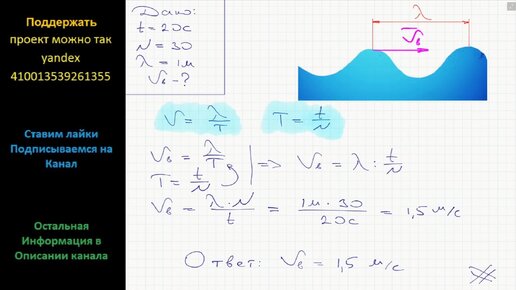 Поддержать
проект можно так
yandex
410013539261355
Ставим лайки
Подписываемся на
Канал
Остальная
Информация в
Описании канала
Дано:
t = 20c
N = 30
λ = 1м
Vв - ?
λ
Vв
V = λ/T   T = t/N
Vв = λ/T
T = t/N   => Vв = λ : t/N
Vв = λ·N/t = 1м · 30/20c = 1,5 м/c
Ответ: Vв = 1,5 м/c